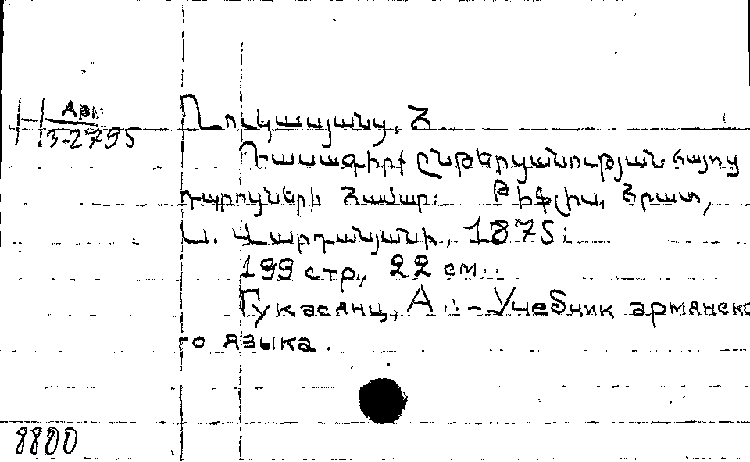 Арм.
3-2795
Ղուկասյանց, Հ
Դասագիրք ընթերցանության հայոց
դպրոցների համար: Թիֆլիս, հրատ,
Ս. Վարդանյանի, 1875:
199 стр, 22 см.
Гукасянц, А :- Учебник армянско
го языка.
8800